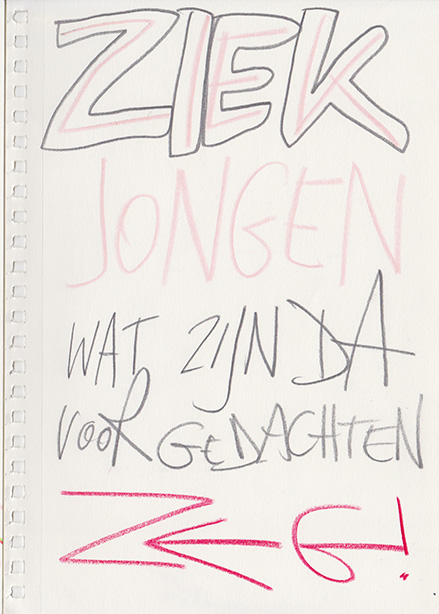 ZIEK
JONGEN
WAT ZIJN DA
VOOR GEDACHTEN
ZEG!